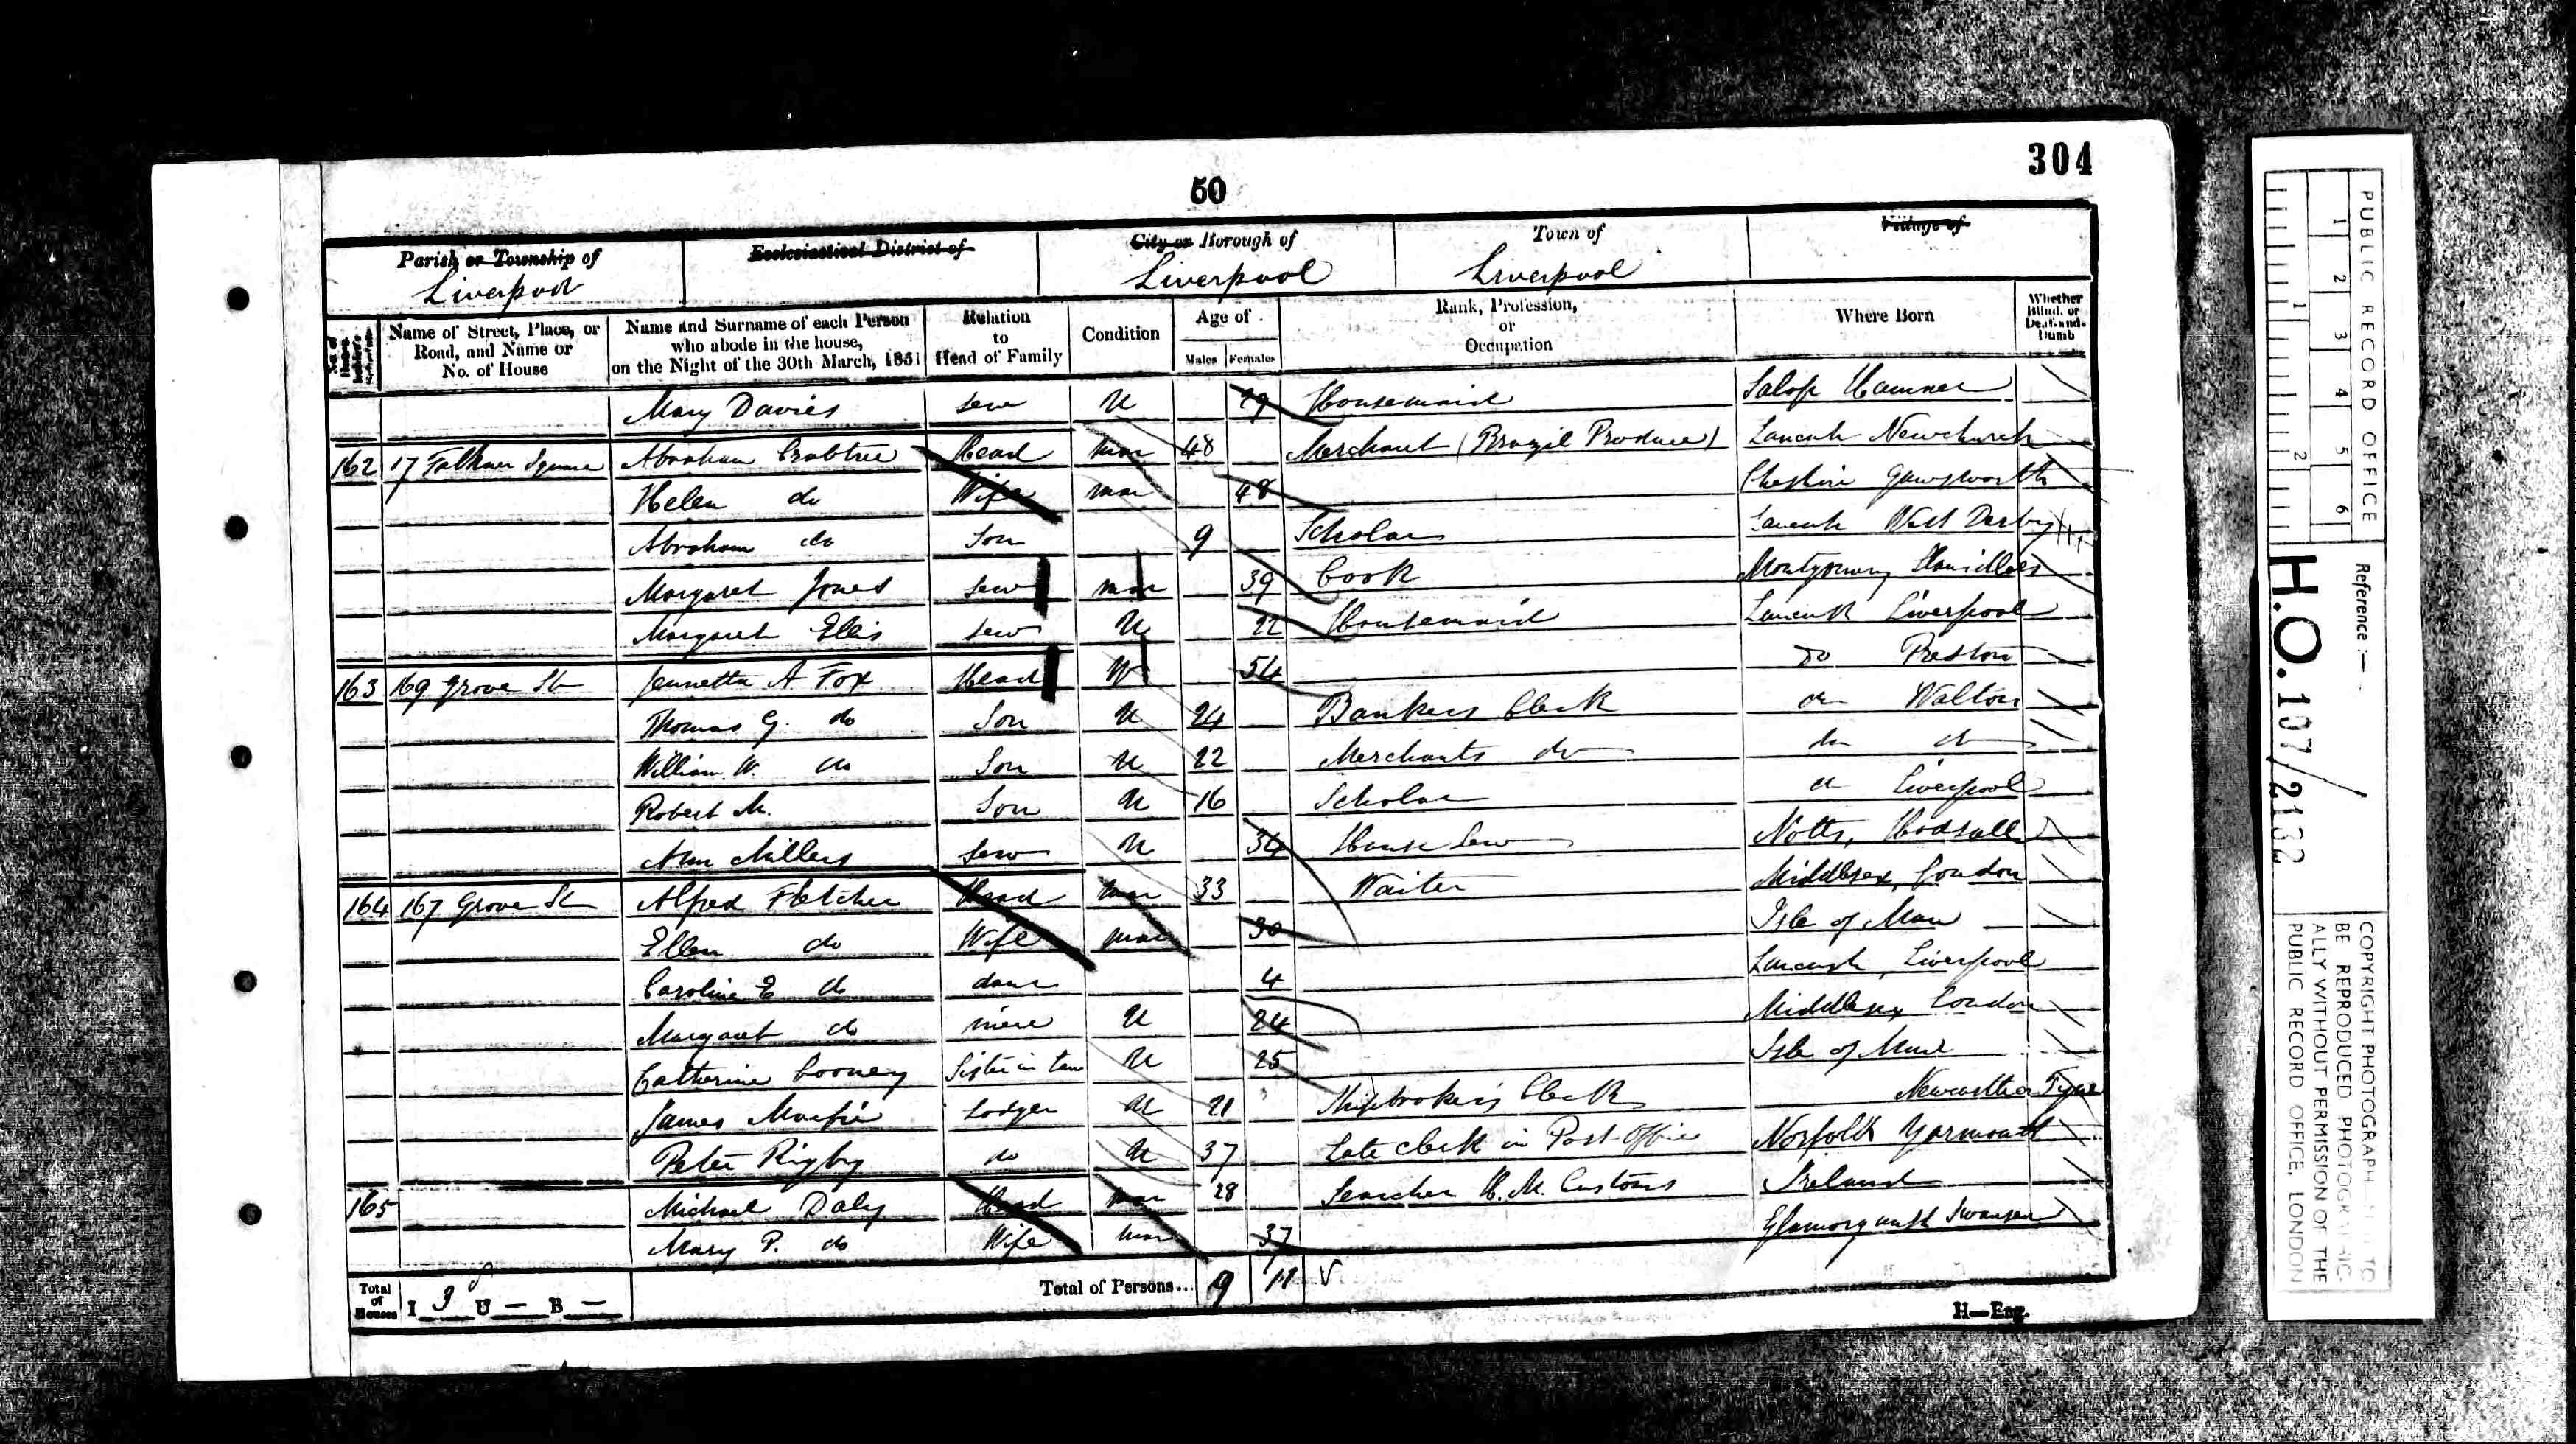 304
50
Parish or Township of
Liverpool
Ecclesiastical District of
City or Borough of
Liverpool
Town of
Liverpool
Village of
Name of Street, Place, or Road, and Name or No. of House
Name and Surname of each Person who abode in the house, on the Night of the 30th March, 1851
Relation to Head of Family
Condition
Age of
Males Females
Rank, Profession, or Occupation
Where Born
Whether Blind, or Deaf-and-Dumb
Mary Davies Serv U 29 Housemaid Salop Hanmer
162 17 Falkner Square Abraham Crabtree Head Mar 48 Merchant (Brazil Produce) Lancash Newchurch
Helen do Wife Mar 48 Cheshire Gawsworth
Abraham do Son 9 Scholar Lancash West Derby
Margaret Jones Serv Mar 39 Cook Montgomery
Margaret Ellis Serv U 22 Housemaid Lancash Liverpool
163 169 Grove St Jennetta A Fox Head W 54 Do Preston
Thomas G. do Son U 24 Bankers Clerk do Walton
William W. do Son U 22 Merchants do do do
Robert M. Son U 16 Scholar do Liverpool
Ann Millers Serv U 34 House Serv Notts,
164 167 Grove St Alfred Fletcher Head Mar 33 Waiter Middlesex, London
Ellen do Wife Mar 30 Isle of Man
Caroline E do daur 4 Lancash, Liverpool
Margaret do niece U 24 Middlesex London
Catherine Cooney Sister in law U 25 Isle of Man
James Lodger U 21 Shipbrokers Clerk Newcastle Tyne
Peter Rigby do U 37 Late Clerk in Post Office Norfolk Yarmouth
165 Michael Daly Head Mar 28 Searcher H.M. Customs Ireland
Mary P. do Wife Mar 37 Glamorgansh Swansea
Total of Houses I 3 U — B —
Total of Persons... 9 11
H—Eng.
PUBLIC RECORD OFFICE
1 2 3 4 5 6
1 2
Reference :—
H.O. 107/2182
COPYRIGHT PHOTOGRAPH TO
BE REPRODUCED PHOTOGRAPHIC-
ALLY WITHOUT PERMISSION OF THE
PUBLIC RECORD OFFICE, LONDON